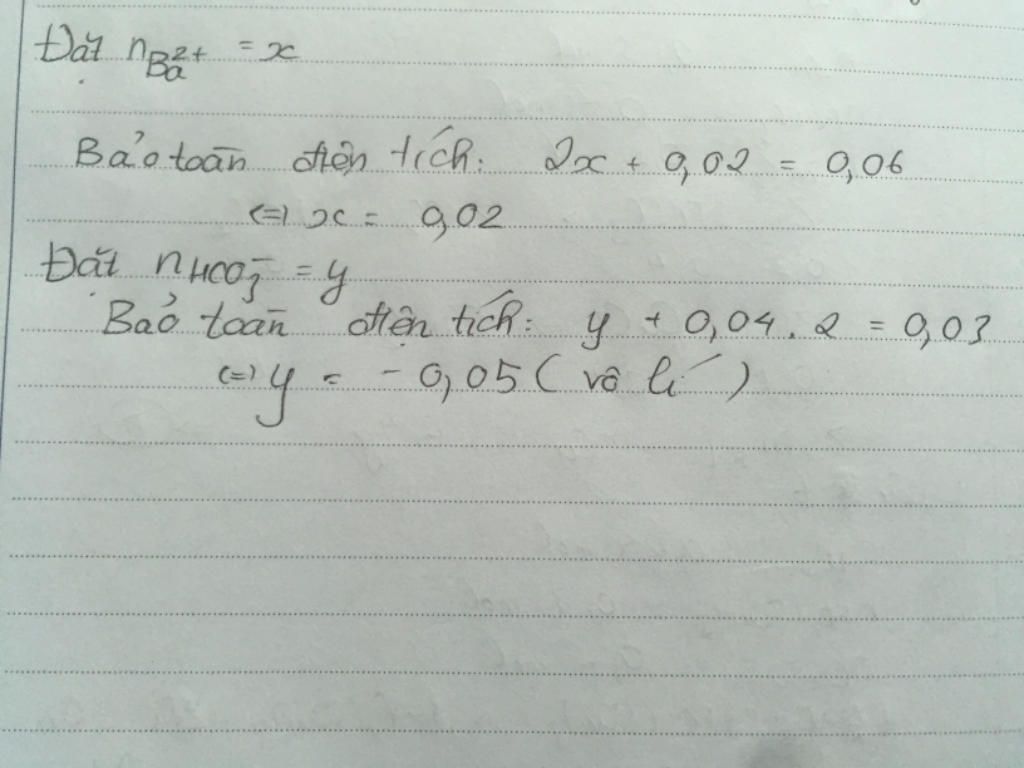 Đặt nBa2+ = x
Bảo toàn điện tích: 2x + 0,02 = 0,06
<=> x = 0,02
Đặt nHCO3- = y
Bảo toàn điện tích: y + 0,04 . 2 = 0,03
<=> y = - 0,05 ( vô lí )